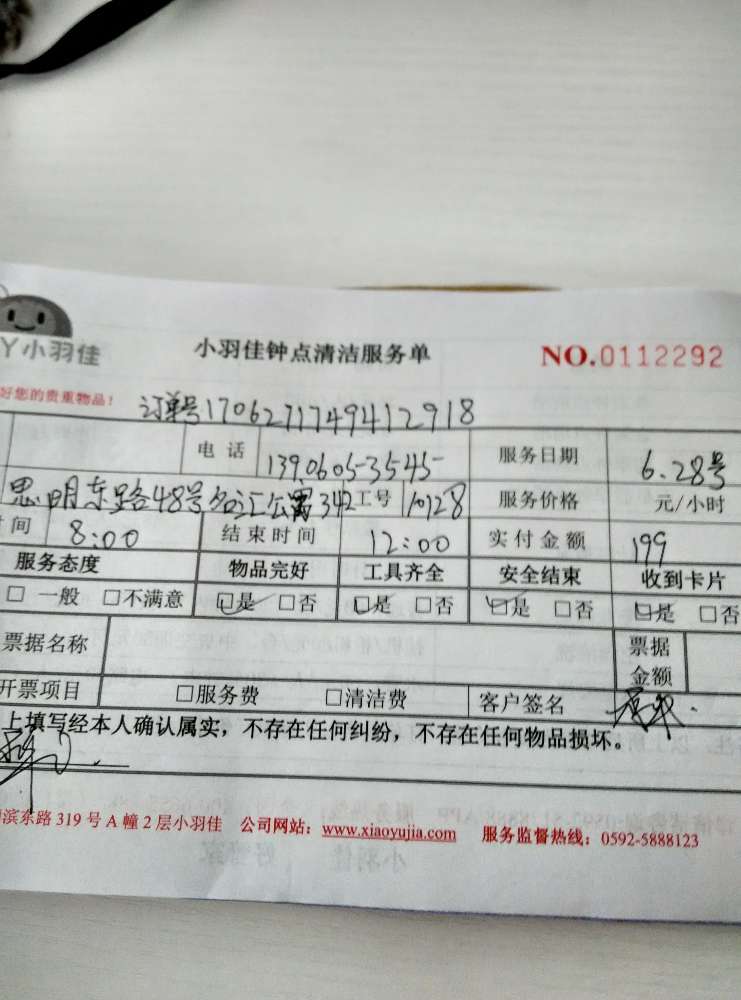 Y小羽佳 小羽佳钟点清洁服务单 NO.0112292
好您的贵重物品! 订单号1706271749412918
电话 139.0605-3545 服务日期 6.28号
思明东路48号 公寓342 工号 10128 服务价格 元/小时
时间 8:00 结束时间 12:00 实付金额 199
服务态度 物品完好 工具齐全 安全结束 收到卡片
□ 一般 □不满意 □是 □否 □是 □否 □是 □否 □是 □否
票据名称 票据金额
开票项目 □服务费 □清洁费 客户签名
上填写经本人确认属实，不存在任何纠纷，不存在任何物品损坏。
滨东路 319 号 A 幢 2 层小羽佳 公司网站：www.xiaoyujia.com 服务监督热线：0592-5888123